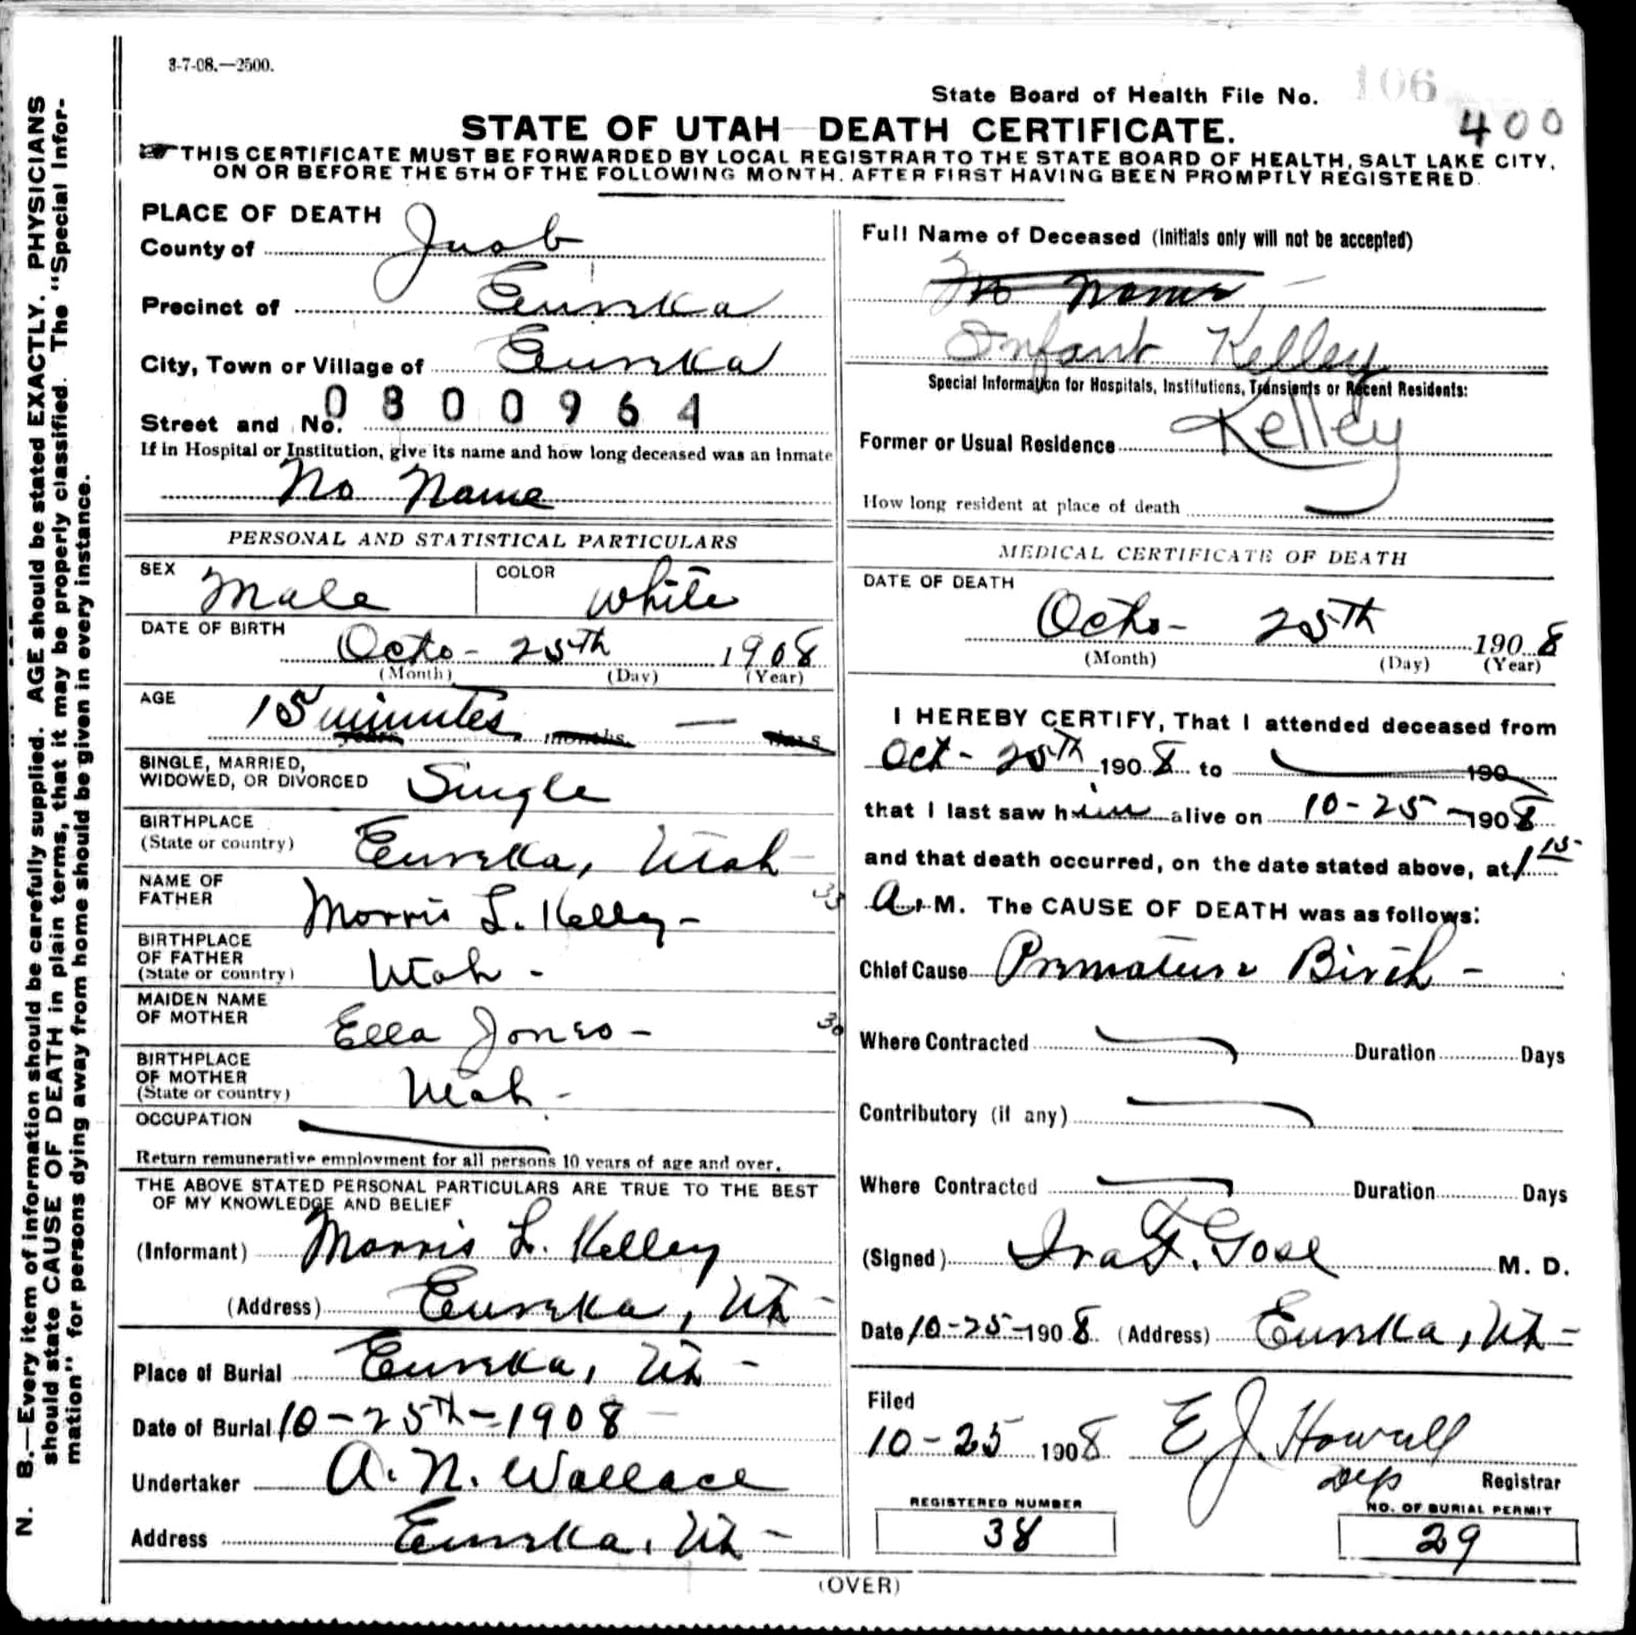 3-7-08.—2500.
State Board of Health File No. 106
400
STATE OF UTAH—DEATH CERTIFICATE.
THIS CERTIFICATE MUST BE FORWARDED BY LOCAL REGISTRAR TO THE STATE BOARD OF HEALTH, SALT LAKE CITY,
ON OR BEFORE THE 5TH OF THE FOLLOWING MONTH. AFTER FIRST HAVING BEEN PROMPTLY REGISTERED.
N. B.—Every item of information should be carefully supplied. AGE should be stated EXACTLY. PHYSICIANS
should state CAUSE OF DEATH in plain terms, that it may be properly classified. The "Special Infor-
mation" for persons dying away from home should be given in every instance.
PLACE OF DEATH
County of Juab
Precinct of Eureka
City, Town or Village of Eureka
Street and No. 0800964
If in Hospital or Institution, give its name and how long deceased was an inmate
No Name
Full Name of Deceased (Initials only will not be accepted)
No Name
Infant Kelley
Special Information for Hospitals, Institutions, Transients or Recent Residents:
Former or Usual Residence Kelley
How long resident at place of death
PERSONAL AND STATISTICAL PARTICULARS
SEX Male COLOR White
DATE OF BIRTH
Octo- 25th 1908
(Month) (Day) (Year)
AGE 15 minutes
years months days
SINGLE, MARRIED,
WIDOWED, OR DIVORCED Single
BIRTHPLACE
(State or country) Eureka, Utah
NAME OF
FATHER Morris L. Kelley - 33
BIRTHPLACE
OF FATHER
(State or country) Utah -
MAIDEN NAME
OF MOTHER Ella Jones - 30
BIRTHPLACE
OF MOTHER
(State or country) Utah -
OCCUPATION
Return remunerative employment for all persons 10 years of age and over.
THE ABOVE STATED PERSONAL PARTICULARS ARE TRUE TO THE BEST
OF MY KNOWLEDGE AND BELIEF
(Informant) Morris L. Kelley
(Address) Eureka, Ut -
Place of Burial Eureka, Ut -
Date of Burial 10-25th-1908
Undertaker A. N. Wallace
Address Eureka, Ut -
MEDICAL CERTIFICATE OF DEATH
DATE OF DEATH
Octo- 25th 1908
(Month) (Day) (Year)
I HEREBY CERTIFY, That I attended deceased from
Oct- 25th 1908 to 190
that I last saw him alive on 10-25-1908
and that death occurred, on the date stated above, at 1 15
A. M. The CAUSE OF DEATH was as follows:
Chief Cause Premature Birth -
Where Contracted Duration Days
Contributory (if any)
Where Contracted Duration Days
(Signed) Ira F. Gose M. D.
Date 10-25-1908 (Address) Eureka, Ut -
Filed
10-25 1908 E J. Howell
Dep Registrar
REGISTERED NUMBER
38
NO. OF BURIAL PERMIT
29
(OVER)